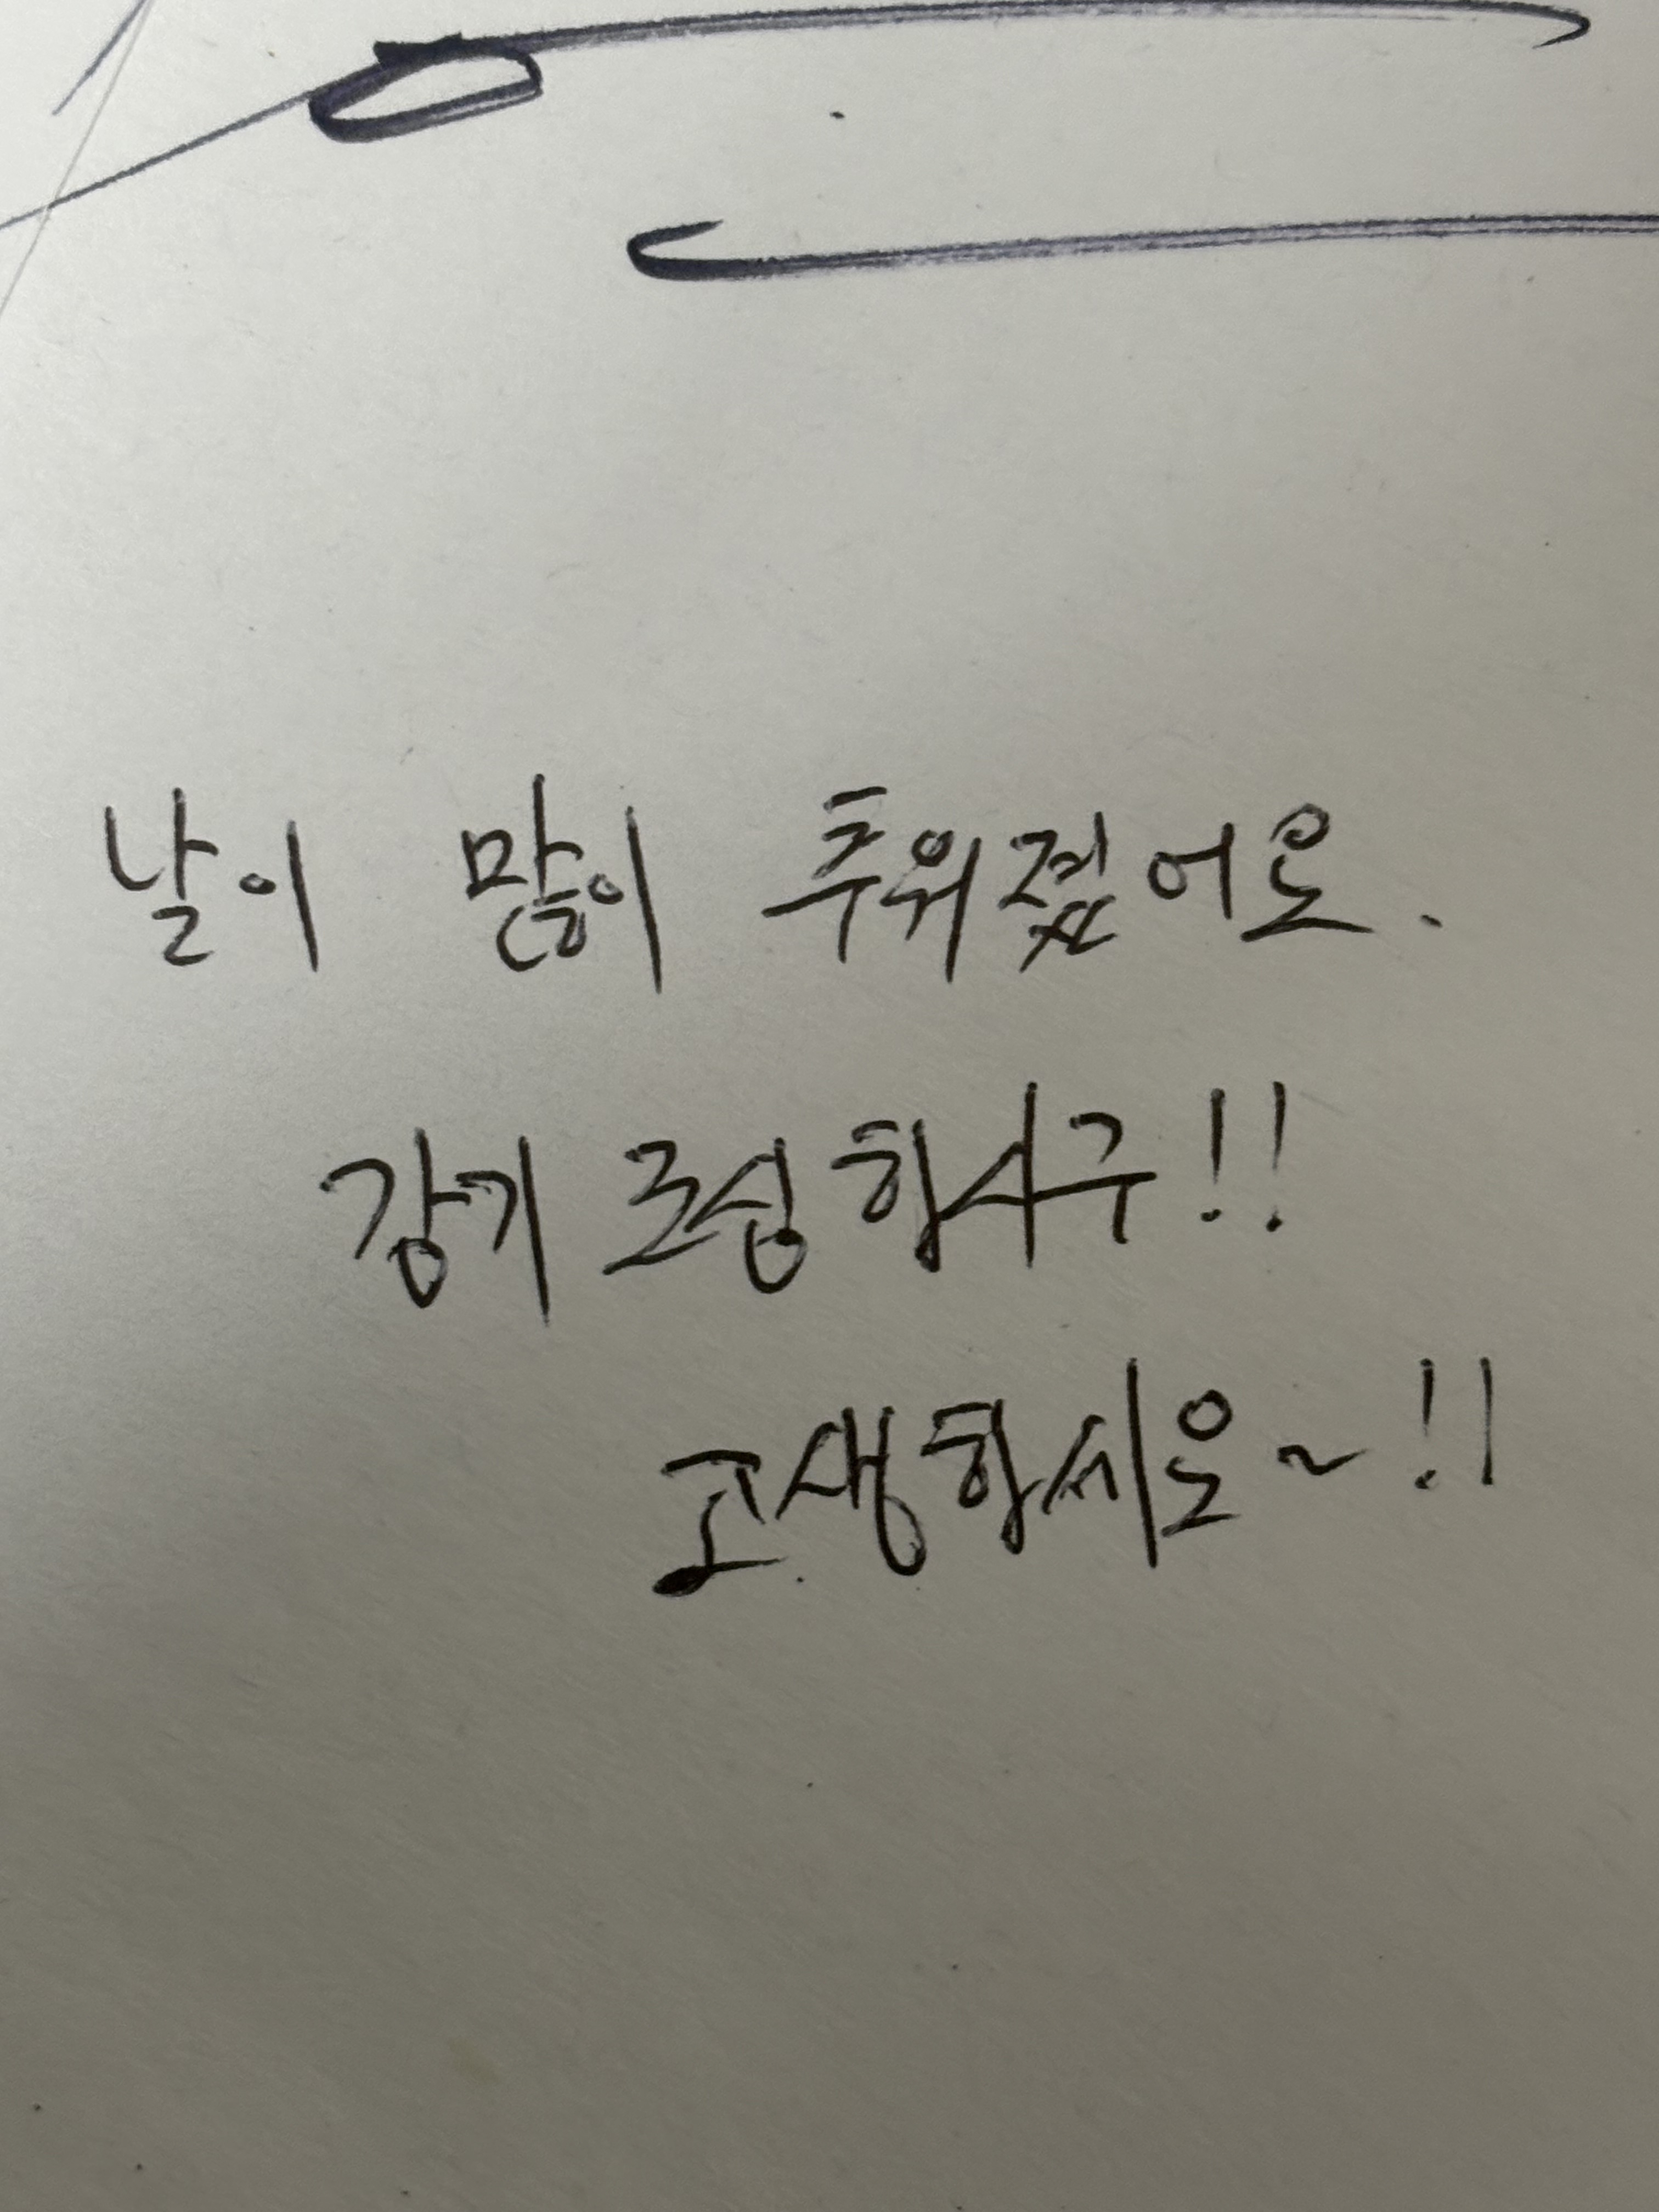 날이 많이 추워졌어요.
감기 조심하시구!!
고생하세요~!!